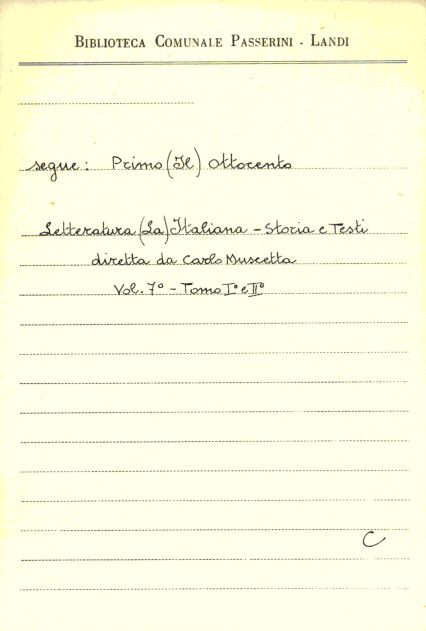 BIBLIOTECA COMUNALE PASSERINI - LANDI
segue: Primo (Il) Ottocento
Letteratura (La) Italiana - Storia e Testi
diretta da Carlo Muscetta
Vol. 7° - Tomo I° e II°
C